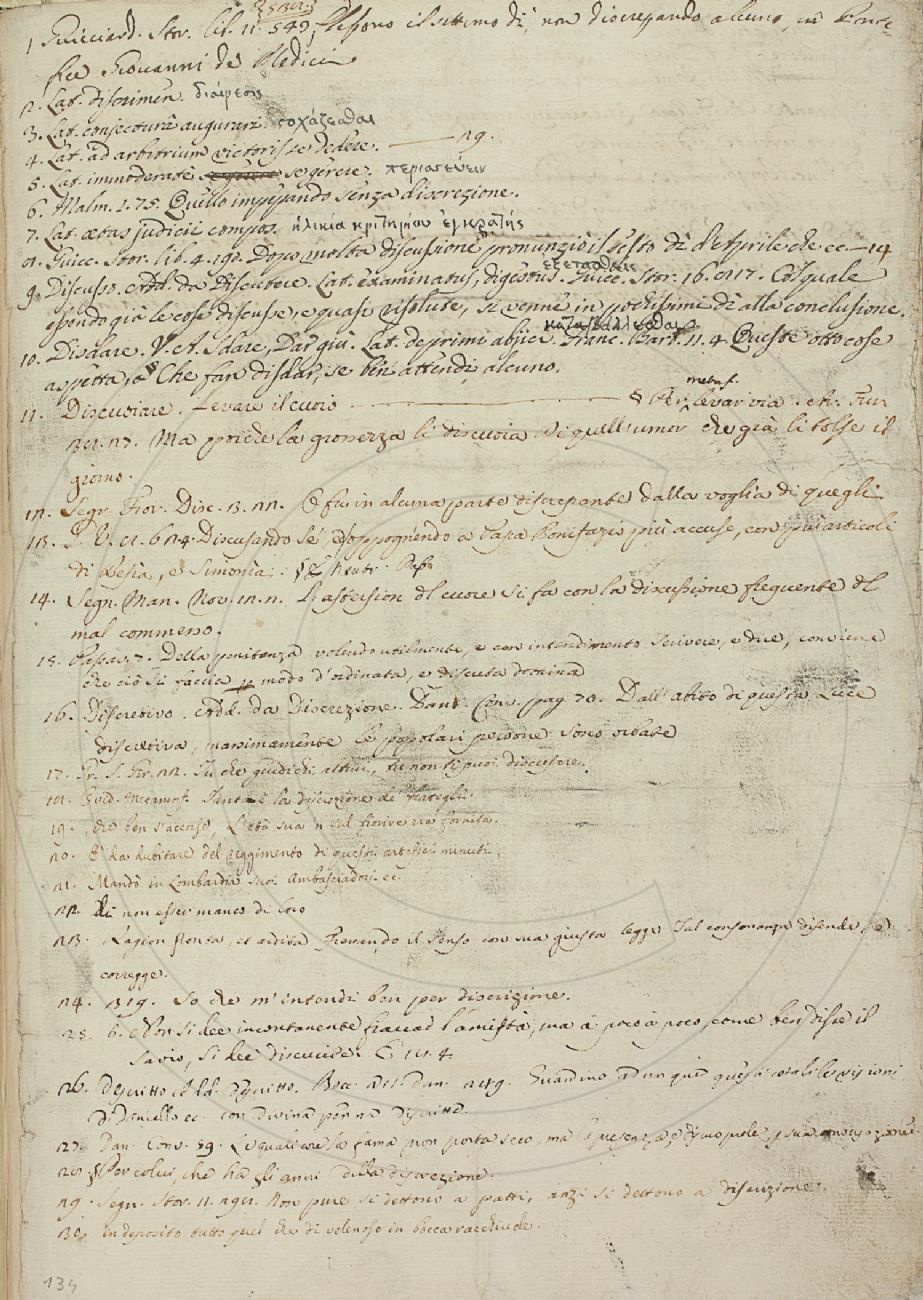 1 Guicciard. Stor. lib. 11. 549. elessono il settimo dì, non discrepando alcuno, in Ponte=
fice Giovanni de Medici
2. Lat. discrimen. διαίρεσις
3. Lat. conjectura augurari. στοχάζεσθαι
4. Lat. ad arbitrium victoris se dedere. —— 29.
5. Lat. immoderate se gerere. περισσεύειν
6. Malm. 1. 75. Quello senza discrezione.
7. Lat. aetas judicii compos. ἡλικία κριτηρίου ἐγκρατής
8. Guicc. Stor. lib. 4. 190. Dopo molta discussione pronunziò il sesto dì d'Aprile che ec. — 14
ἐξετασθείς
9. Discusso. Add. da Discutere. Lat. examinatus, digestus. Guicc. Stor. 16. 817. Co' quale
essendo già le cose discusse, e quasi risolute, si venne in pochissimi dì alla conclusione.
καταβάλλεσθαι
10. Disdare. V. A. Sdare, Dar giù. Lat. deprimi abjici. Franc. Barb. 11. 4 Queste otto cose
aspetta, Che fan disdar, se bin attendi, alcuno.
11. Discuoiare. Levare il cuoio —— § Per metaf. levar via.
Ma poichè la grossezza li discuoia Di quell'umor che già li tolse il
giorno.
12. Segr. Fior. Disc. 3. 22. O fu in alcuna parte discrepante dalla voglia di quegli
13. G. V. 8. 62 4. Discusando sè, e soppognendo a Papa Bonifazio più accuse, con più articoli
di Resia, e Simonia. § Neutr. Pass.
14. Segn. Man. Nov. 12. 2. L'ascension del cuore si fa con la discussione frequente del
mal commesso.
15. Passav. 7. Della penitenza volendo utilmente, e con intendimento scrivere, e dire, conviene
che ciò si faccia p modo d'ordinata, e discreta dottrina
16. Discretivo. Add. da Discrezione. Dant. Conv. pag. 70. Dall'abito di questa luce
discretiva, massimamente le popolari persone sono orbate
17. Fr. S. Gr. 22. Tu che giudichi altrui, tu non ti puoi discusare.
18. Ovid. Metamorf. Tanta è la discrezione de' frategli
19. che ben s'accorse, L'età sua in sul fiorire era fornita.
20. È da dubitare del reggimento di questi artefici minuti.
21. Mandò in Lombardia suoi Ambasciadori ec.
22. Di non esser manco di loro
23. Ragion pronta, et ardita Trovando il senso con sua giusta legge Tal consonanza difende, e
corregge.
24. 319. So che m'intendi ben per discrizione.
25. 6. Non si dee incontanente fiaccar l'amistà, ma a poco a poco, come ben disse il
Savio, si dee discucire. C 181. 4
26. Discritto Add. Discritto. Bocc. Vit. Dan. 249. Guardino adunque questi cotali le visioni
di Daniello ec. con divina penna discritte.
27. Dan. Conv. 59. Le quali cose la fama non porta seco, ma la presenza,
28. § Per colui, che ha gli anni della discrezione.
29. Segn. Stor. 11. 298. Non pure si dettono a patti, anzi si dettono a discrizione.
30. In deposito tutto quel che di velenoso in bocca racchiude.
134